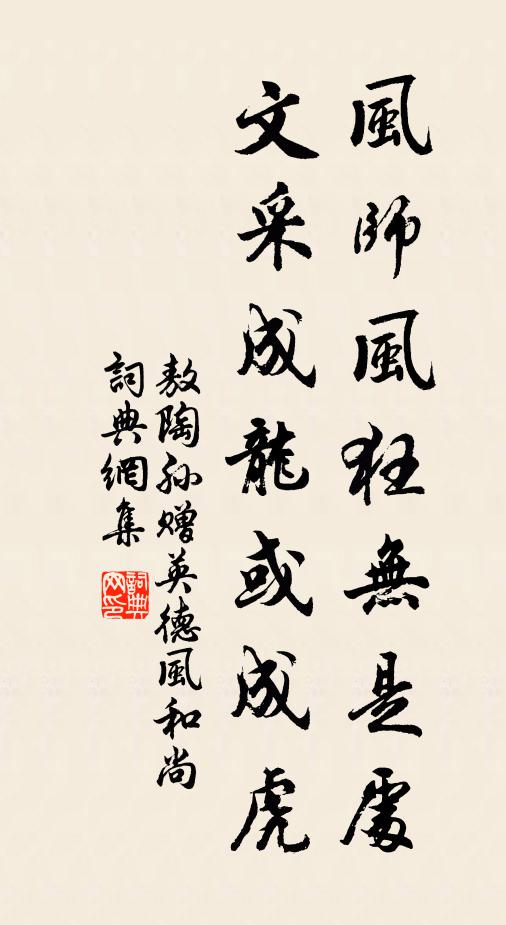 風師風狂無是處
文采成龍或成虎
敖陶孫贈英德風和尚
詞典網集
詞典
网印